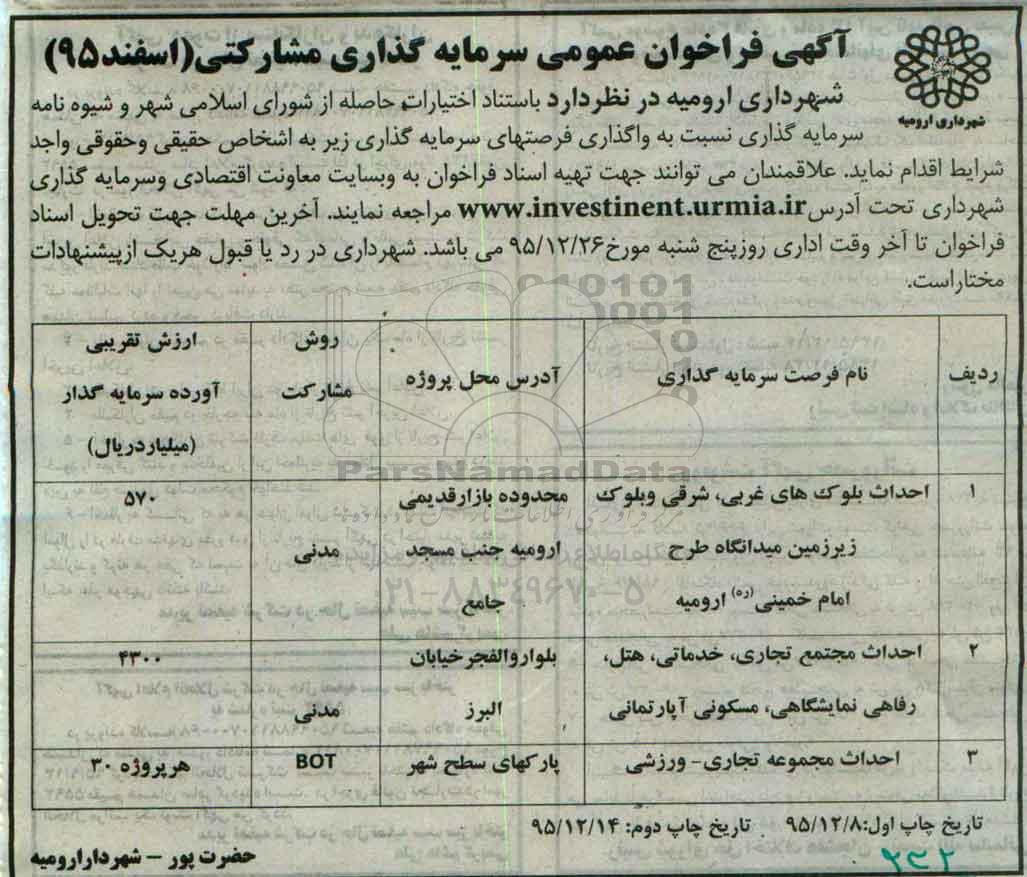 آگهی فراخوان عمومی سرمایه گذاری مشارکتی(اسفند۹۵)
شهرداری ارومیه
شهرداری ارومیه در نظردارد باستناد اختیارات حاصله از شورای اسلامی شهر و شیوه نامه
سرمایه گذاری نسبت به واگذاری فرصتهای سرمایه گذاری زیر به اشخاص حقیقی وحقوقی واجد
شرایط اقدام نماید. علاقمندان می توانند جهت تهیه اسناد فراخوان به وبسایت معاونت اقتصادی وسرمایه گذاری
شهرداری تحت آدرس www.investinent.urmia.ir مراجعه نمایند. آخرین مهلت جهت تحویل اسناد
فراخوان تا آخر وقت اداری روزپنج شنبه مورخ ۹۵/۱۲/۲۶ می باشد. شهرداری در رد یا قبول هریک ازپیشنهادات
مختاراست.
ردیف
نام فرصت سرمایه گذاری
آدرس محل پروژه
روش
مشارکت
ارزش تقریبی
آورده سرمایه گذار
(میلیاردریال)
۱
احداث بلوک های غربی، شرقی وبلوک
زیرزمین میدانگاه طرح
امام خمینی(ره) ارومیه
محدوده بازارقدیمی
ارومیه جنب مسجد
جامع
مدنی
۵۷۰
۲
احداث مجتمع تجاری، خدماتی، هتل،
رفاهی نمایشگاهی، مسکونی آپارتمانی
بلواروالفجرخیابان
البرز
مدنی
۴۳۰۰
۳
احداث مجموعه تجاری- ورزشی
پارکهای سطح شهر
BOT
هرپروژه ۳۰
تاریخ چاپ اول:۹۵/۱۲/۸ تاریخ چاپ دوم: ۹۵/۱۲/۱۴
حضرت پور - شهردارارومیه
ParsNamadData
۰۲۱-۸۸۳۴۹۶۷۰-۵